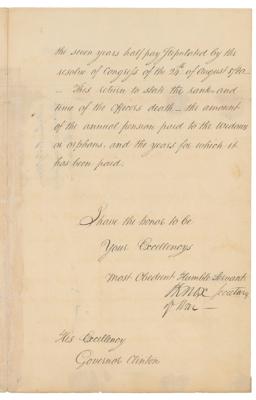 the seven years half pay stipulated by the
resolve of Congress of the 24th of August 1780 —
— This return to state the rank and
time of the Officers death — the amount
of the annual pension paid to the Widows
or orphans, and the years for which it
has been paid.
I have the honor to be
Your Excellencys
most Obedient Humble Servant
HKnox Secretary
of War —
His Excellency
Governor Clinton